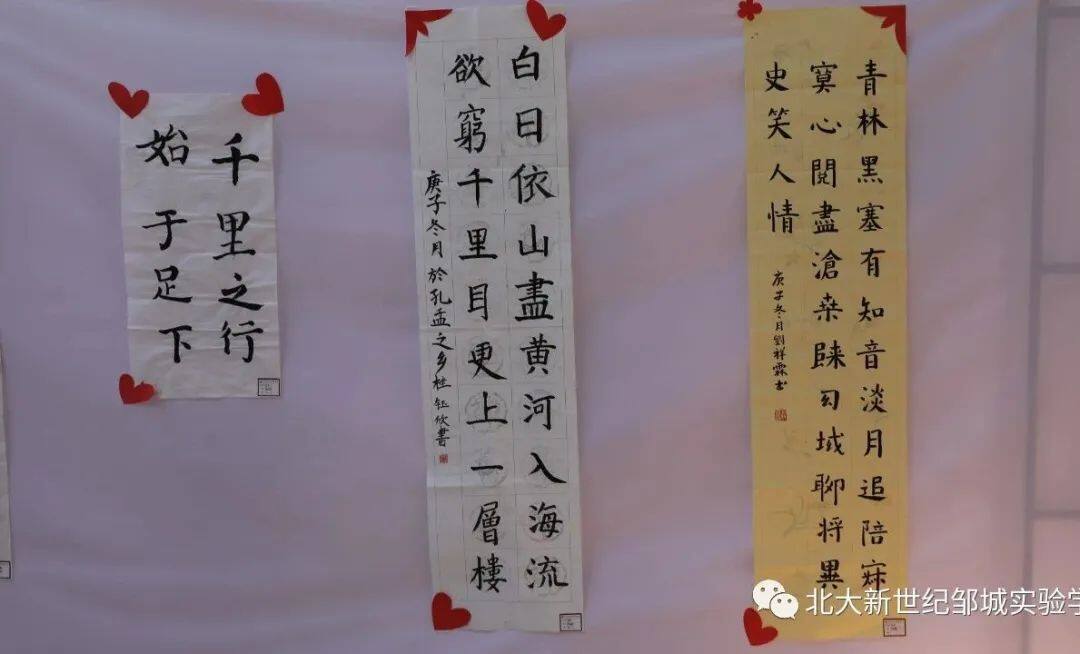 千里之行
始于足下
白日依山盡黄河入海流
欲窮千里目更上一層樓
庚子冬月於孔孟之乡杜钰欣書
青林黑塞有知音淡月追陪寂
寞心閱盡滄桑歸幻域聊將異
史笑人情
庚子冬月劉祥霖书
北大新世纪邹城实验学